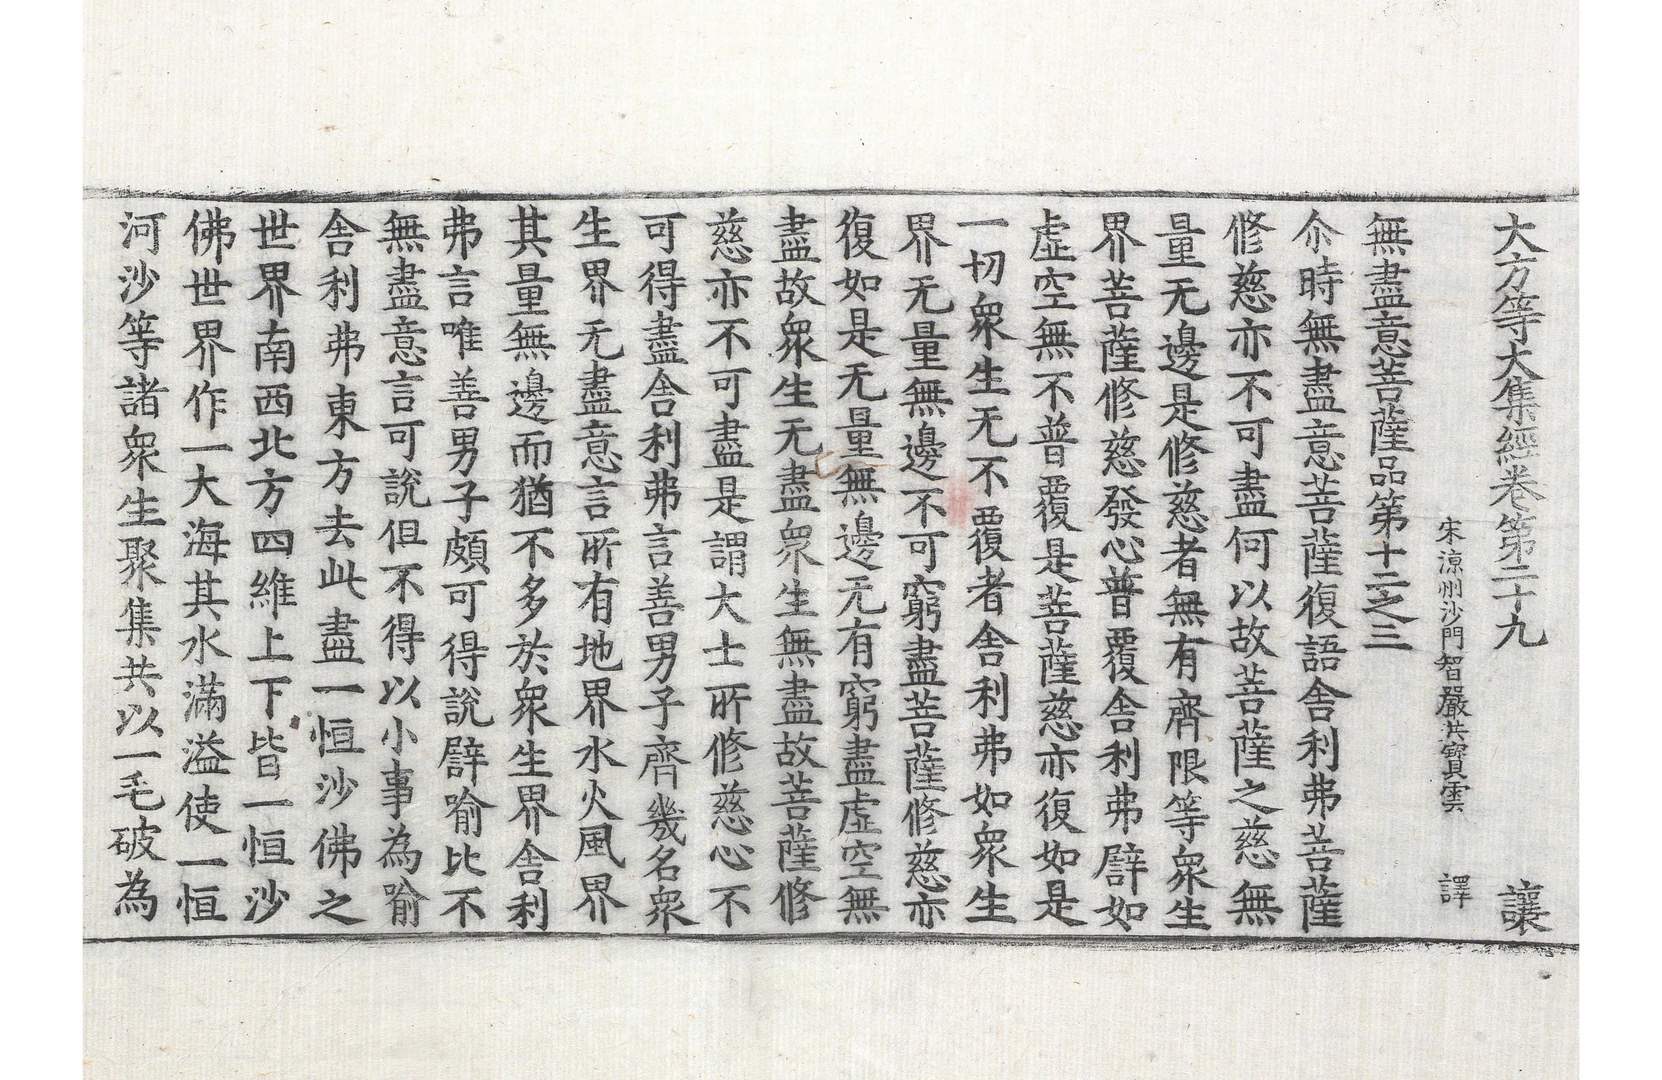 大方等大集經卷第二十九 讓
宋涼州沙門智嚴共寶雲 譯
無盡意菩薩品第十二之三
尒時無盡意菩薩復語舍利弗菩薩
修慈亦不可盡何以故菩薩之慈無
量无邊是修慈者無有齊限等衆生
界菩薩修慈發心普覆舍利弗譬如
虛空無不普覆是菩薩慈亦復如是
一切衆生无不覆者舍利弗如衆生
界无量無邊不可窮盡菩薩修慈亦
復如是无量無邊无有窮盡虛空無
盡故衆生无盡衆生無盡故菩薩修
慈亦不可盡是謂大士所修慈心不
可得盡舍利弗言善男子齊幾名衆
生界无盡意言所有地界水火風界
其量無邊而猶不多於衆生界舍利
弗言唯善男子頗可得說譬喻比不
無盡意言可說但不得以小事為喻
舍利弗東方去此盡一恒沙佛之
世界南西北方四維上下皆一恒沙
佛世界作一大海其水滿溢使一恒
河沙等諸衆生聚集共以一毛破為